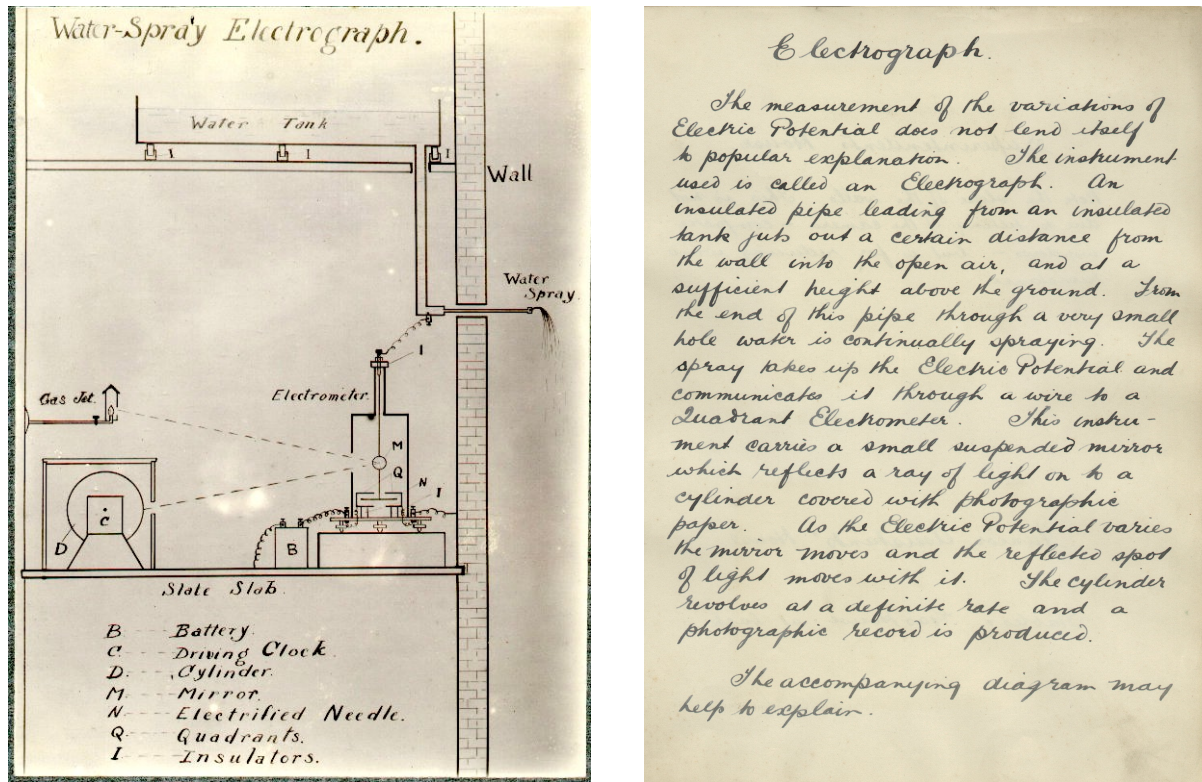 Water-Spray Electrograph.
Water Tank
I
I
I
Wall
Water
Spray.
I
Electrometer.
Gas Jet.
M
Q
N
I
C
D
B
Slate Slab.
B ---- Battery.
C. ---- Driving Clock.
D. ---- Cylinder.
M ---- Mirror.
N ---- Electrified Needle.
Q ---- Quadrants.
I ---- Insulators.
Electrograph.
The measurement of the variations of
Electric Potential does not lend itself
to popular explanation. The instrument
used is called an Electrograph. An
insulated pipe leading from an insulated
tank juts out a certain distance from
the wall into the open air, and at a
sufficient height above the ground. From
the end of this pipe through a very small
hole water is continually spraying. The
spray takes up the Electric Potential and
communicates it through a wire to a
Quadrant Electrometer. This instru-
ment carries a small suspended mirror
which reflects a ray of light on to a
cylinder covered with photographic
paper. As the Electric Potential varies
the mirror moves and the reflected spot
of light moves with it. The cylinder
revolves at a definite rate and a
photographic record is produced.
The accompanying diagram may
help to explain.